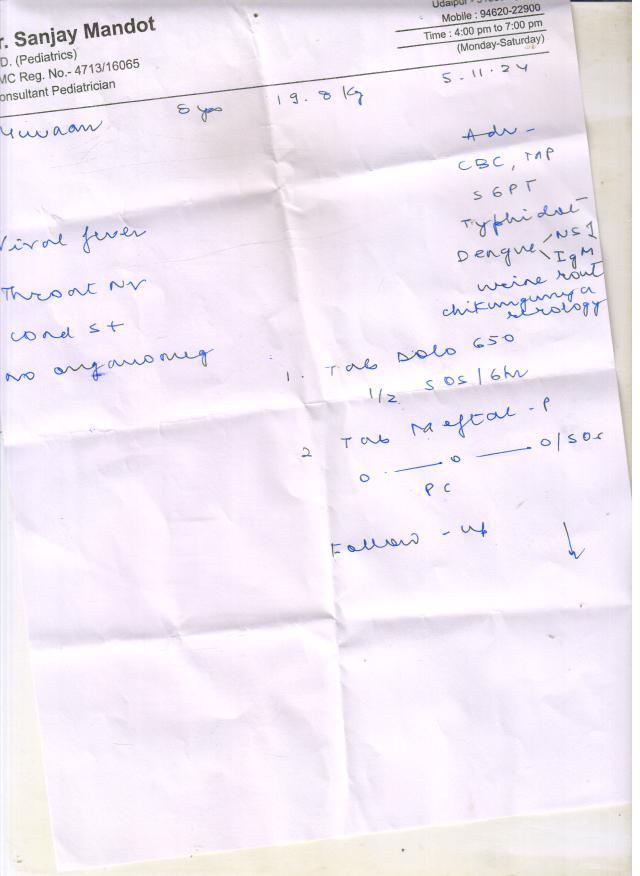 r. Sanjay Mandot
D. (Pediatrics)
MC Reg. No.- 4713/16065
onsultant Pediatrician
Udaipur
Mobile : 94620-22900
Time : 4:00 pm to 7:00 pm
(Monday-Saturday)
5.11.24
Yuvaan 8 yrs 19.8 Kg
Adv -
CBC, PMP
SGPT
Typhidot
Dengue NS1
IgM
urine rout
chikungunya
serology
Viral fever
Throat Nr
cond st
no organomeg
1. Tab Dolo 650
1/2 SOS/6hr
2 Tab Meftal-P
0 — 0 — 0/SOS
PC
Follow-up